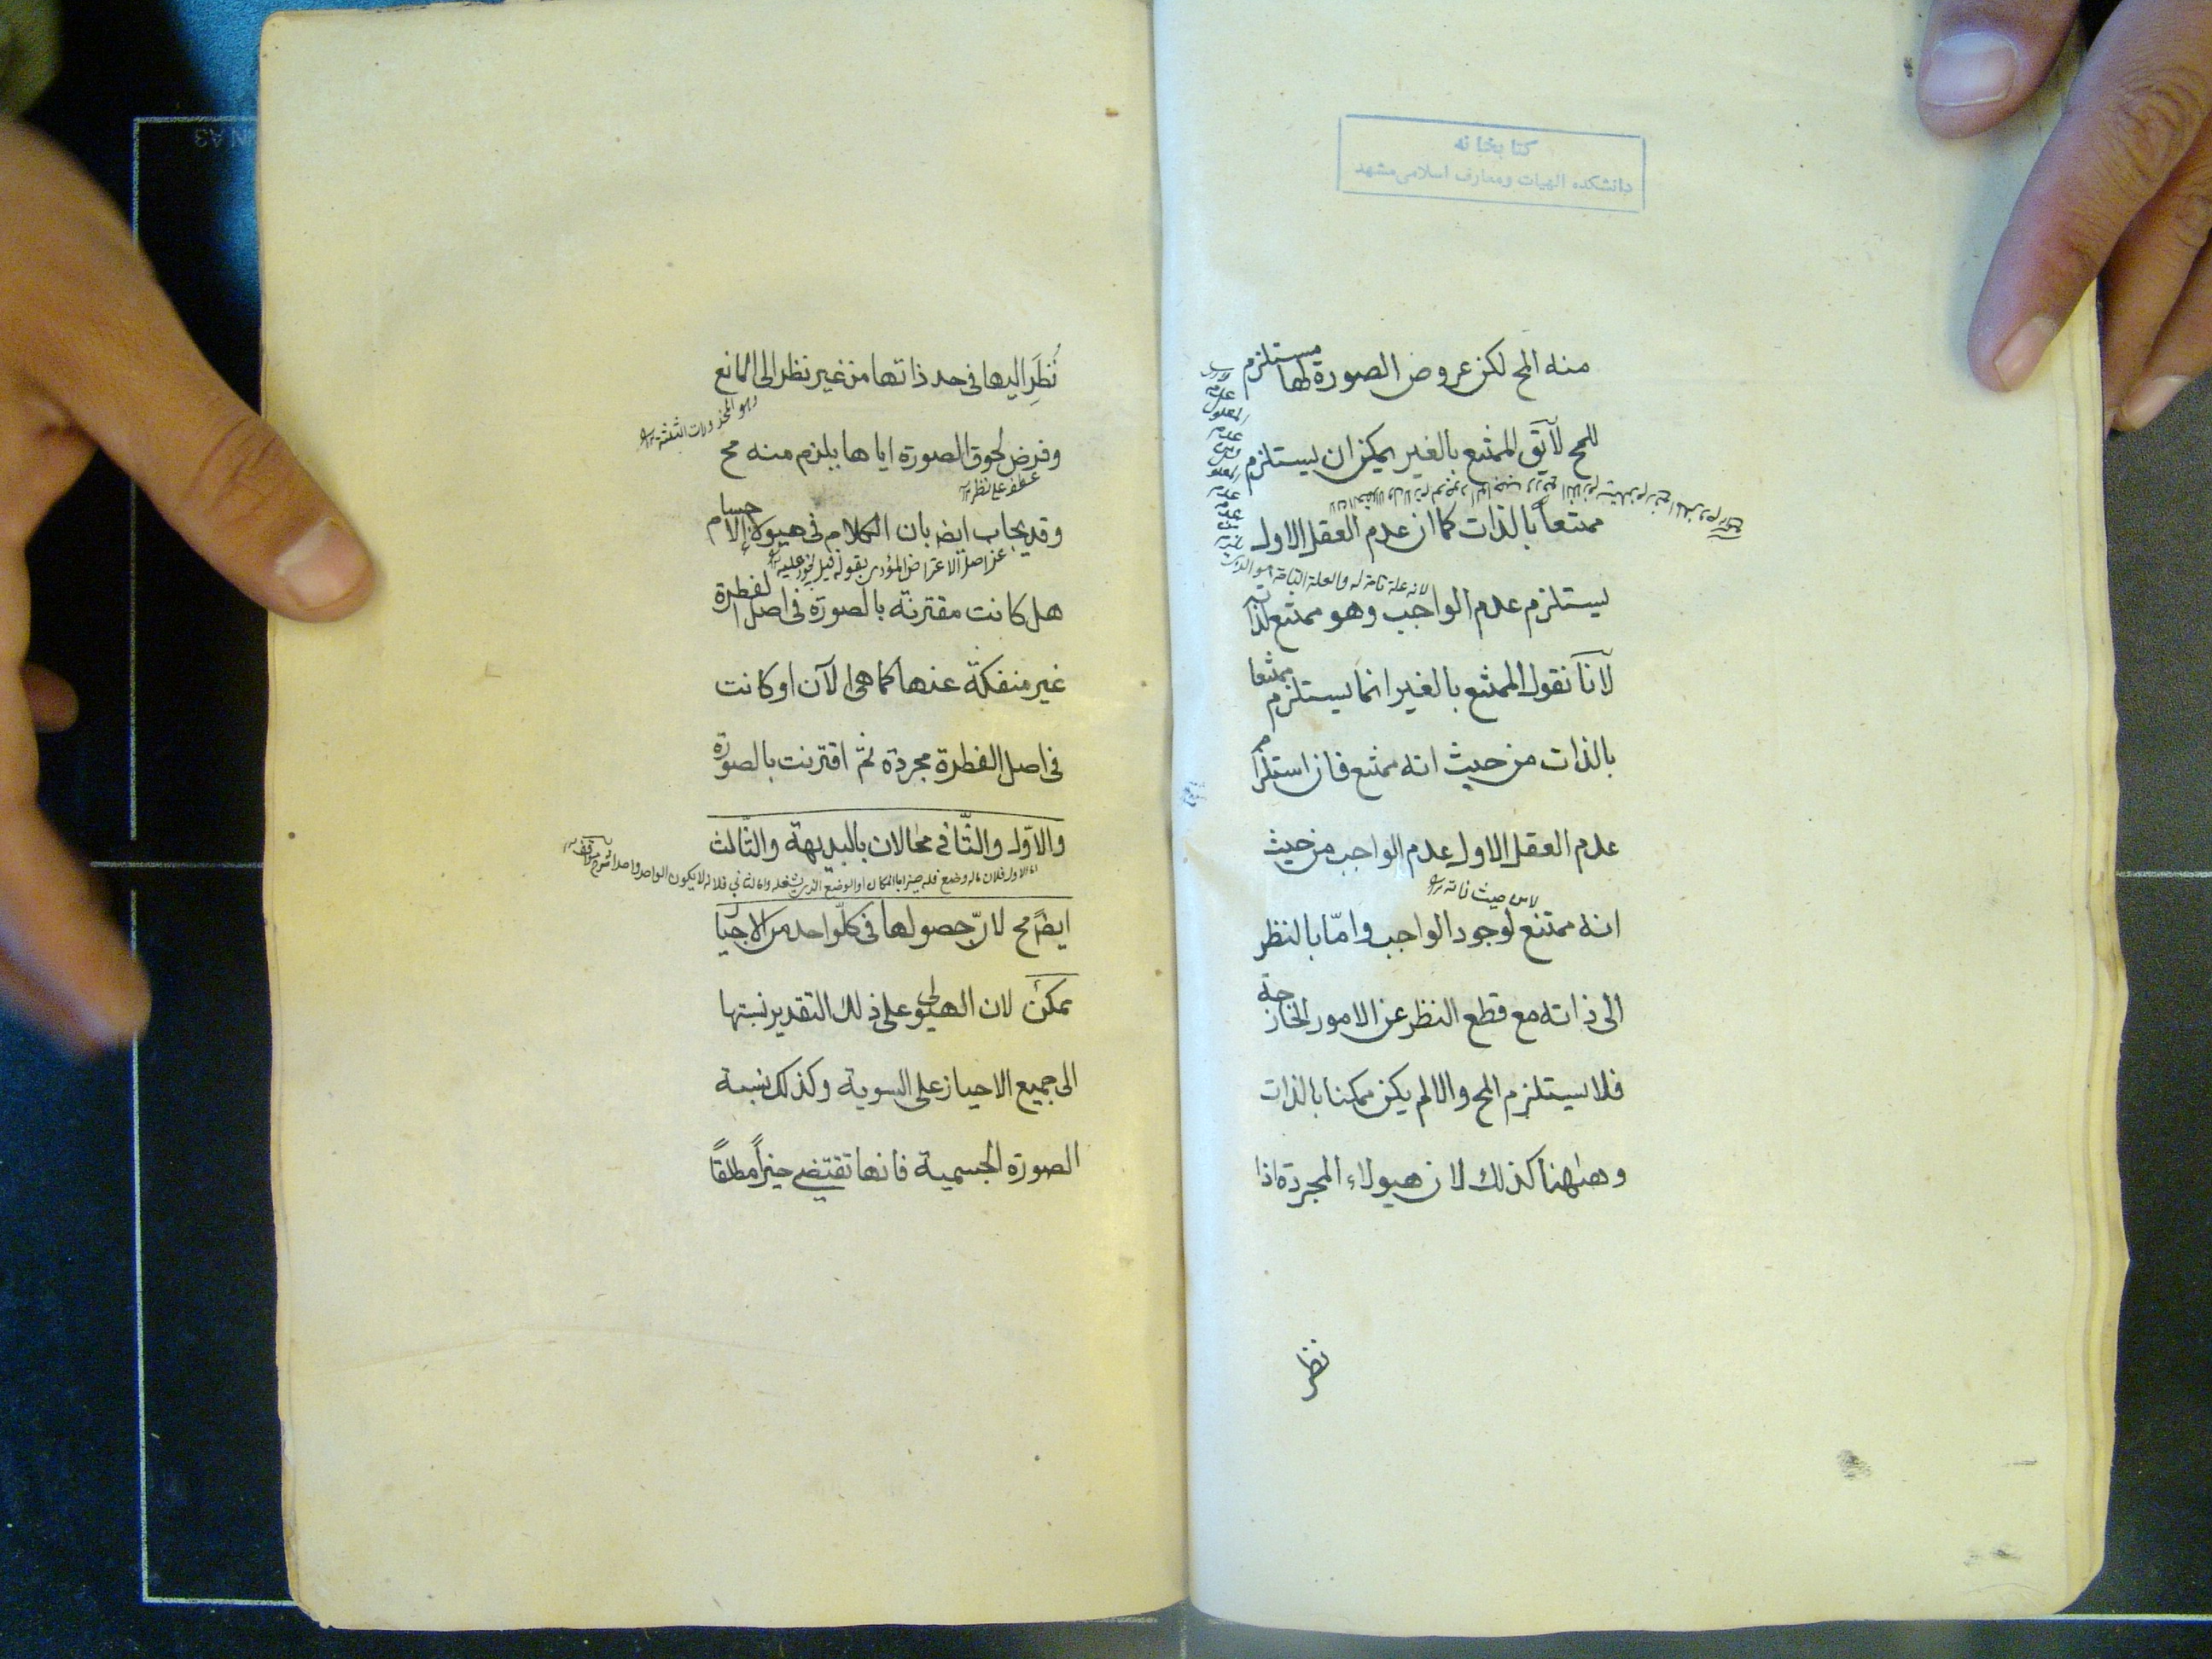 كتابخانه
دانشكده الهيات ومعارف اسلامى مشهد
منه المح لكن عروض الصورة لها مستلزم
للمح لآيق الممتنع بالغير يمكن ان يستلزم
ممتنعاً بالذات كما ان عدم العقل الاول
لانه علة تامة له والعلة التامة هو الواجب
يستلزم عدم الواجب وهو ممتنع لذاته
لآنا نقول الممتنع بالغير انما يستلزم ممتنعا
بالذات من حيث انه ممتنع فان استلزام
عدم العقل الاول عدم الواجب من حيث
لا من حيث ذاته
انه ممتنع لوجود الواجب واما بالنظر
الى ذاته مع قطع النظر عن الامور الخارجة
فلا يستلزم المح والا لم يكن ممكنا بالذات
وههنا كذلك لان هيولاء المجردة اذا
نظر
نُظِرَ اليها فى حد ذاتها من غير نظر الى المانع
وهو المحذورات الثلثة
وفرض لحوق الصورة اياها يلزم منه مح
عطف على نظر
وقد يجاب ايض بان الكلام فى هيولى الاجسام
عن اصل الاعتراض المؤدى بقوله قيل
هل كانت مقترنة بالصورة فى اصل الفطرة
غير منفكة عنها كما هى الآن او كانت
فى اصل الفطرة مجردة ثم اقترنت بالصورة
والاوّل والثّانى محالان بالبديهة والثّالث
ايضً مح لانّ حصولها فى كلّ واحد من الاحياز
ممكن لان الهيولى على ذلك التقدير نسبتها
الى جميع الاحياز على السوية وكذلك نسبة
الصورة الجسمية فانها تقتضى حيزاً مطلقاً